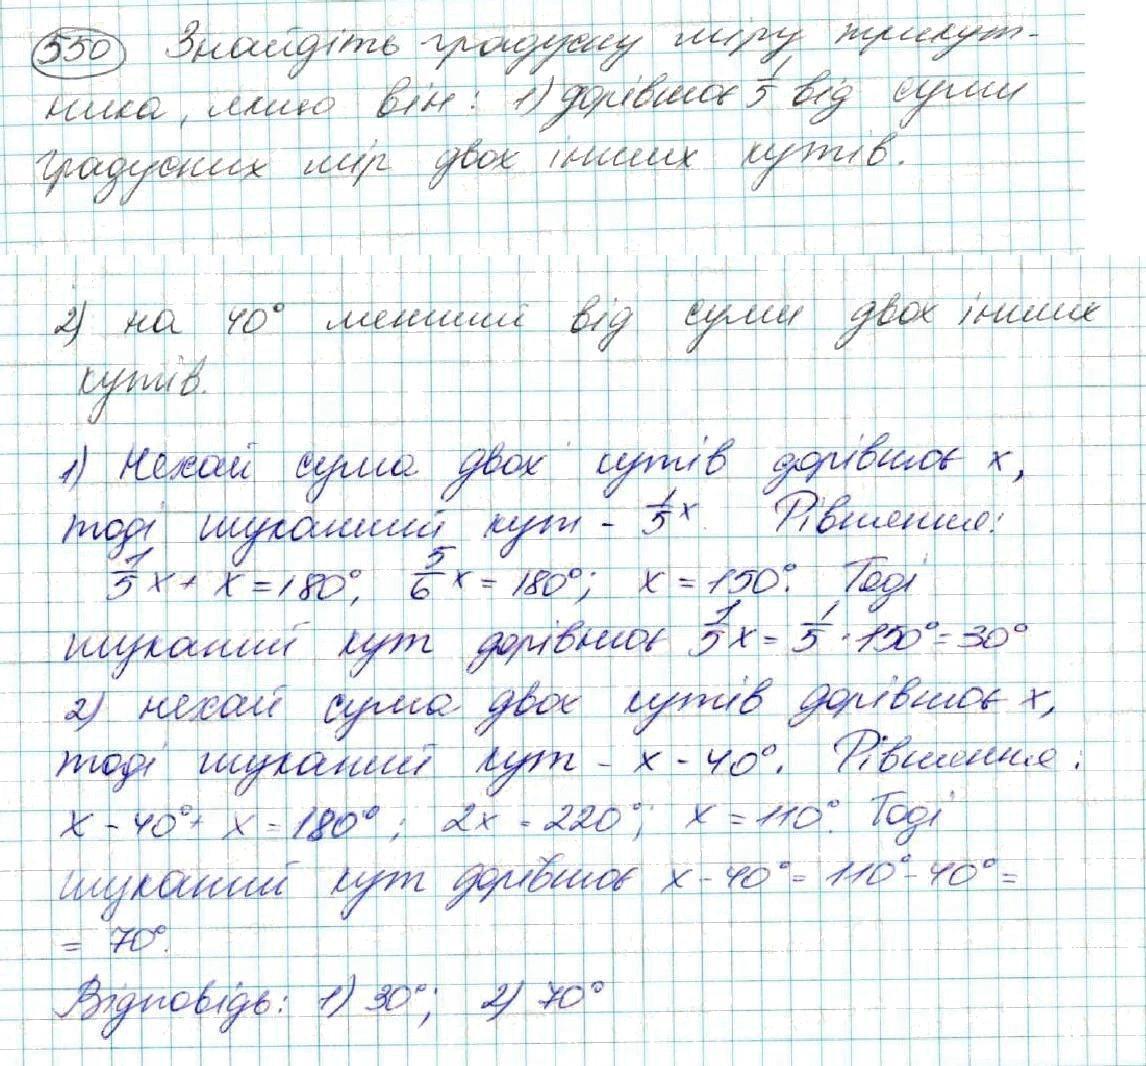 550 Знайдіть градусну міру трикут-
ника, якщо він: 1) дорівнює 1/5 від суми
градусних мір двох інших кутів.
2) на 40° менший від суми двох інших
кутів.
1) Нехай сума двох кутів дорівнює x,
тоді шуканий кут - 1/5 x. Рівняння:
1/5 x + x = 180°, 5/6 x = 180°; x = 150°. Тоді
шуканий кут дорівнює 1/5 x = 1/5 · 150° = 30°
2) нехай сума двох кутів дорівнює x,
тоді шуканий кут - x - 40°. Рівняння:
x - 40° + x = 180°; 2x = 220°; x = 110°. Тоді
шуканий кут дорівнює x - 40° = 110° - 40° =
= 70°.
Відповідь: 1) 30°; 2) 70°